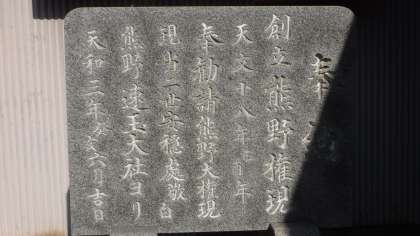 奉
創立熊野権現
天文十八年
奉勧請熊野大権現
現当二世安穏處敬白
熊野速玉大社ヨリ
天和三年癸亥六月吉日